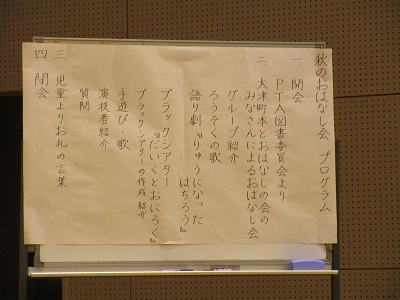 秋のおはなし会　プログラム
一 開会
ＰＴＡ図書委員会より
二、大津町本とおはなしの会の
みなさんによるおはなし会
グループ紹介
ろうそくの歌
語り劇『りゅうになった
はちろう』
ブラックシアター
『だいくとおにろく』
ブラックシアターの作成紹介
手遊び・歌
演技者紹介
質問
三 児童よりお礼の言葉
四 閉会